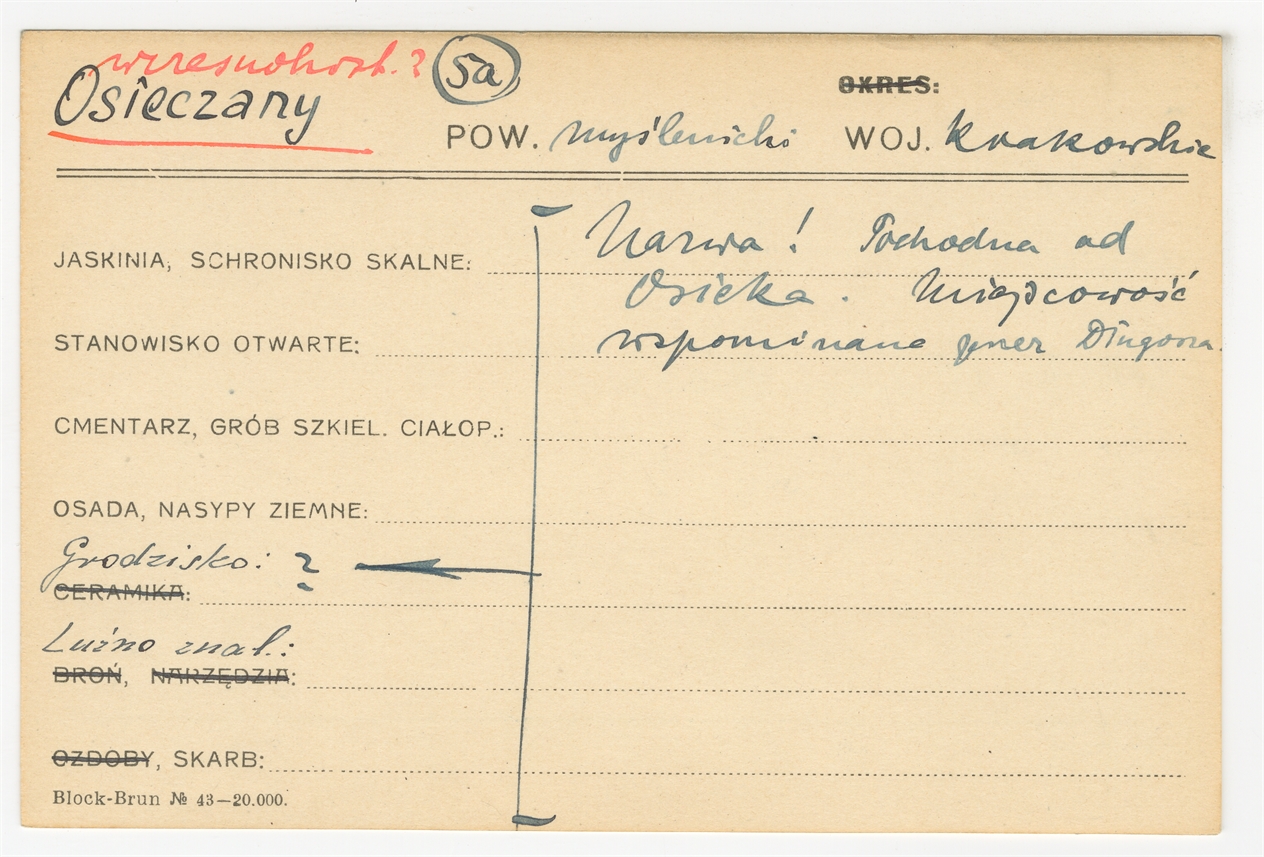 wczesnohist.?
Osieczany
5a
OKRES:
POW. myślenicki WOJ. Krakowskie
Nazwa! Pochodna od
JASKINIA, SCHRONISKO SKALNE:
Osieka. Miejscowość
STANOWISKO OTWARTE:
wspominana przez Długosza.
CMENTARZ, GRÓB SZKIEL. CIAŁOP.:
OSADA, NASYPY ZIEMNE:
Grodzisko: ?
CERAMIKA:
Luźno znal.:
BROŃ, NARZĘDZIA:
OZDOBY, SKARB:
Block-Brun № 43—20.000.